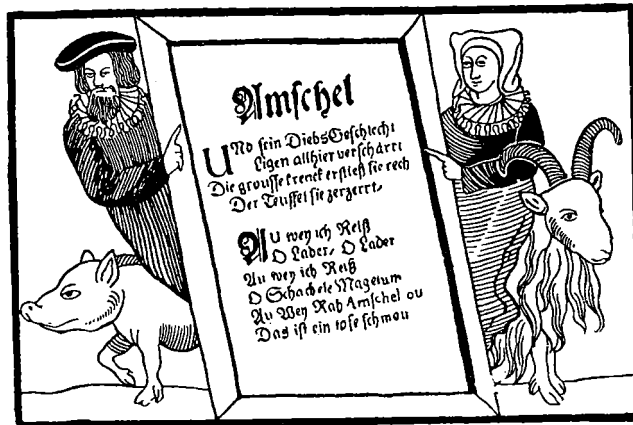 Amschel
UNd sein DiebsGeschlecht
Ligen allhier verscharrt
Die grousse krenck erstieß sie rech
Der Teuffel sie zerzerrt,
AU wey ich Reiß
O Lader, O Lader
Au wey ich Reiß
O Schachele Magetum
Au Wey Rab Amschel ou
Das ist ein tofe schmou